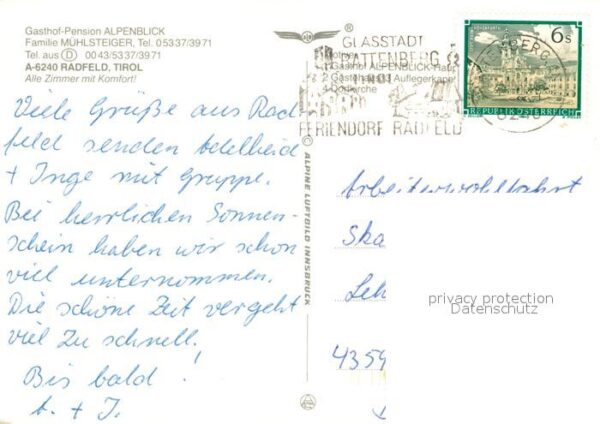 Gasthof-Pension ALPENBLICK
Familie MÜHLSTEIGER, Tel. 05337/3971
Tel. aus D 0043/5337/3971
A-6240 RADFELD, TIROL
Alle Zimmer mit Komfort!
Viele Grüße aus Rad
feld senden Adelheid
+ Inge mit Gruppe.
Bei herrlichen Sonnen-
schein haben wir schon
viel unternommen.
Die schöne Zeit vergeht
viel zu schnell.
Bis bald!
A. + I.
© ALPINE LUFTBILD INNSBRUCK
GLASSTADT
RATTENBERG
Gasthof ALPENBLICK
2 Gästehaus Auflegerkapelle
4 Dorfkirche
FERIENDORF RADFELD
6 S
REPUBLIK ÖSTERREICH
Arbeiterwohlfahrt
Ska
Leh
4359
privacy protection
Datenschutz